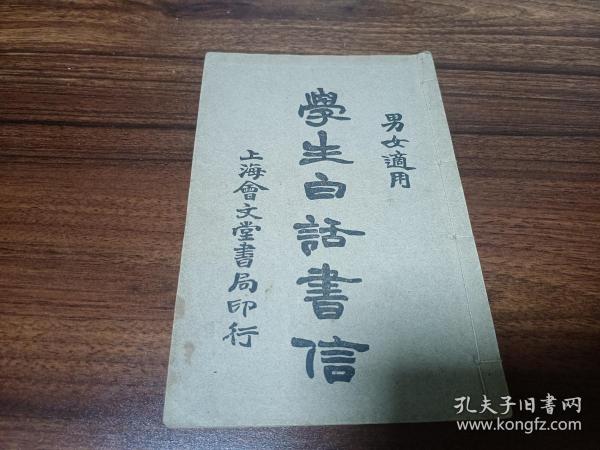 男女適用
學生白話書信
上海會文堂書局印行
孔夫子旧書网
www.kongfz.com